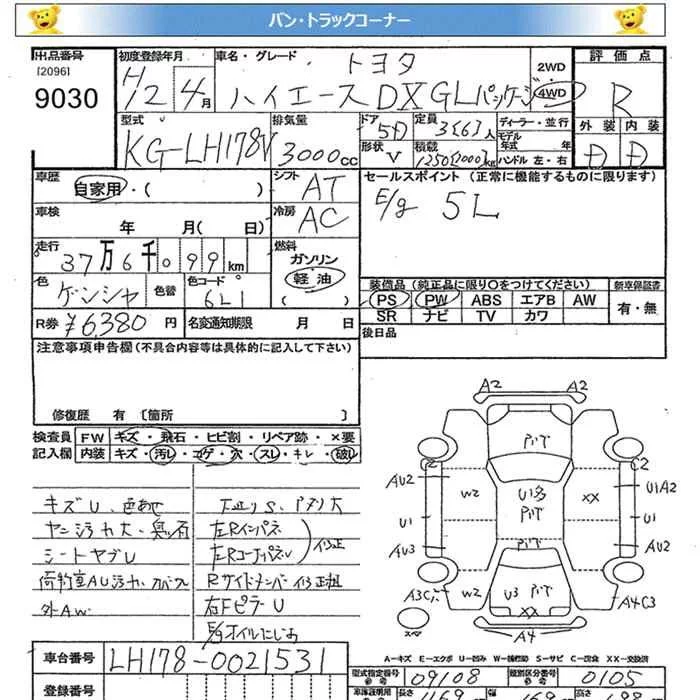 バン・トラックコーナー
出品番号
[2096]
9030
初度登録年月
H12年4月
車名・グレード
トヨタ
ハイエースDX GLパッケージ
2WD
4WD
評価点
R
外装 内装
D D
型式
KG-LH178V
排気量
3000cc
ドア
5D
定員
3[6]人
ディーラー・並行
モデル
年式 年
形状
V
積載
1250[1000]kg
ハンドル 左・右
車歴
自家用・( )
シフト
AT
セールスポイント (正常に機能するものに限ります)
E/g 5L
車検
年 月( 日)
冷房
AC
走行
37万6千099km
燃料
ガソリン
軽油
( )
色
ゲンシャ
色替
色コード
6L1
装備品 (純正品に限り○をつけてください)
新車保証書
PS PW ABS エアB AW
有・無
SR ナビ TV カワ
R券 ¥6380円
名変通知期限 月 日
後日品
注意事項申告欄 (不具合内容等は具体的に記入して下さい)
修復歴 有 [箇所 ]
検査員
記入欄
FW キズ・飛石・ヒビ割・リペア跡・×要
内装 キズ・汚レ・コゲ・穴・スレ・キレ・破レ
キズU、色あせ
ヤニ汚れ大・臭い有
シートヤブレ
外AW
下廻りS、
左Rインパネ
左Rコーナーパネル
修正
Rサイドメンバー修正
右FピラーU
E/gオイルにじみ
A2 A2
P.T
C2 C2
AU2 W2 U1多 P.T XX U1A2
U1 U1
AU3 P.T AU2
W2 U3 P.T
A3C W2 XX A4C3
A4
スペア
A-キズ E-エクボ U-凹み W-補修跡 S-サビ C-腐食 XX-交換済
車台番号
LH178-0021531
型式指定番号
参考
09108
類別区分番号
参考
0105
登録番号
車庫証明用
長さ
469
幅
169
高さ
198